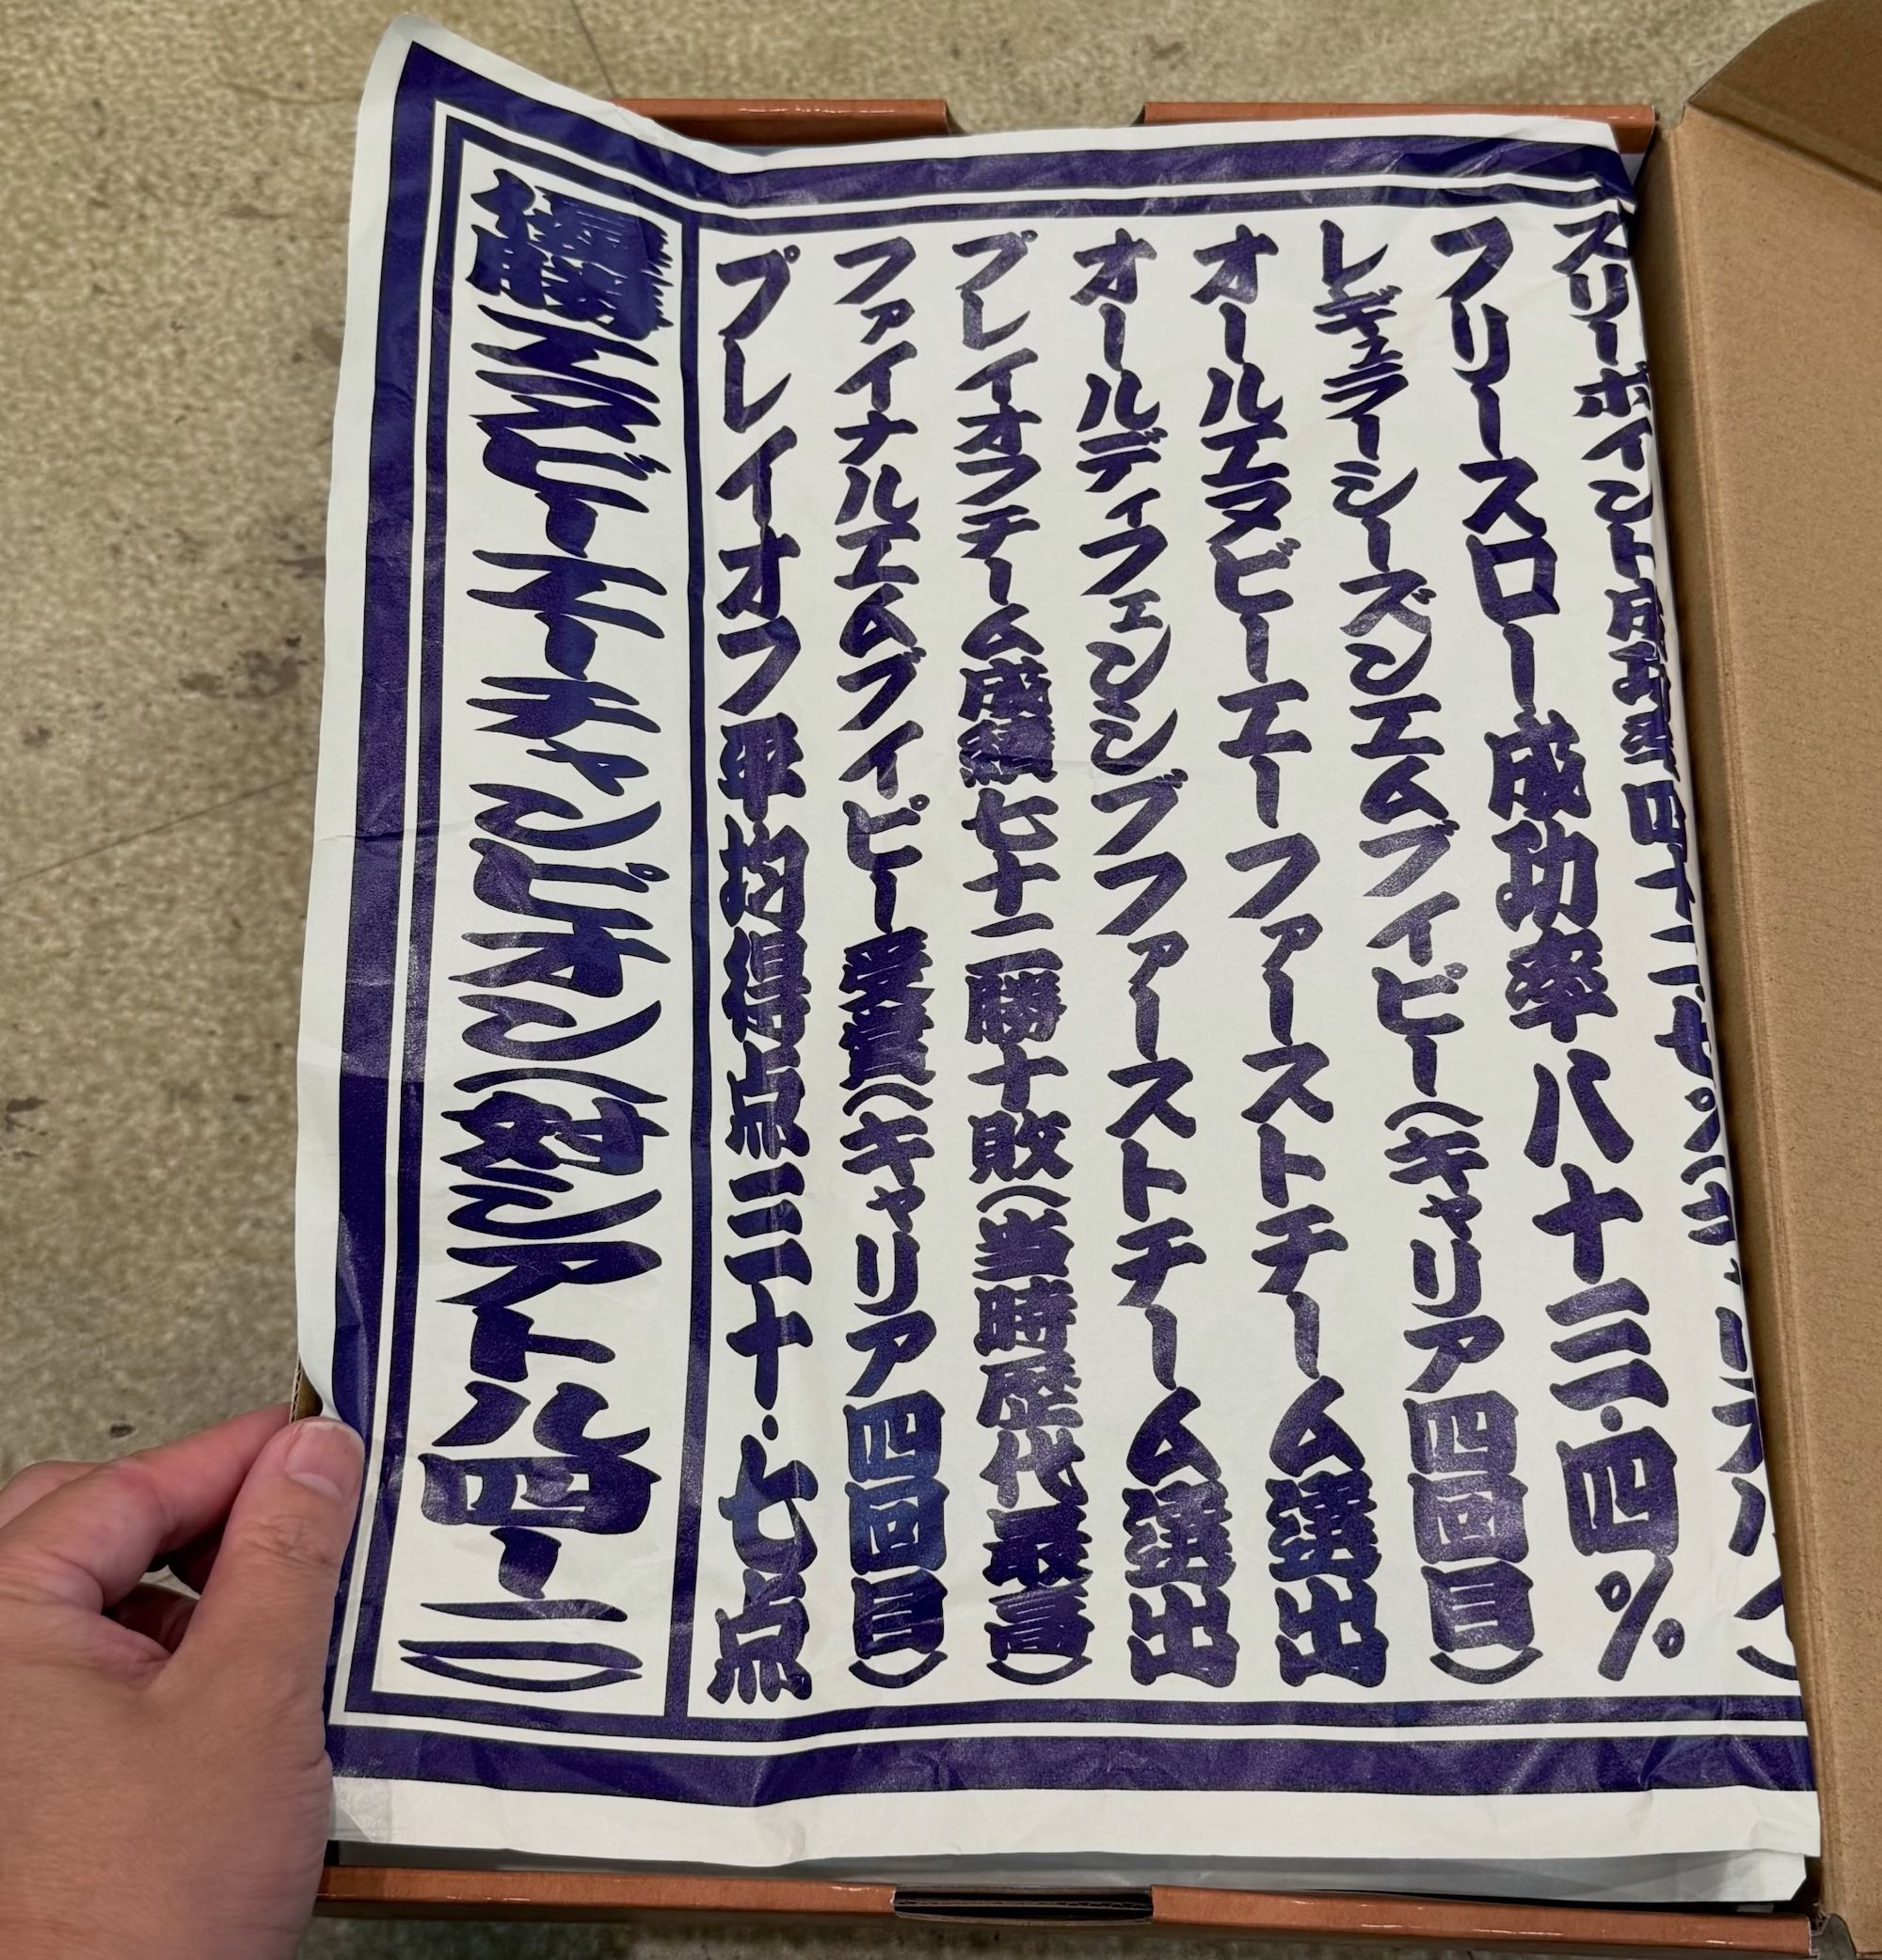 スリーポイント成功率四十二.七%(キャリアハイ)
フリースロー成功率八十三.四%
レギュラーシーズンエムブイピー(キャリア四回目)
オールエヌビーエーファーストチーム選出
オールディフェンシブファーストチーム選出
プレイオフチーム成績七十二勝十敗(当時歴代最高)
ファイナルエムブイピー受賞(キャリア四回目)
プレイオフ平均得点三十.七点
優勝エヌビーエーチャンピオン(対シアトル四ー二)